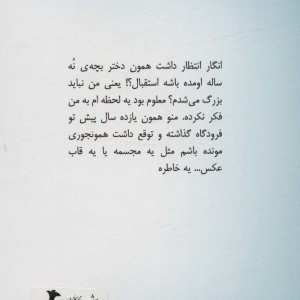 انگار انتظار داشت همون دختر بچه‌ی نُه
ساله اومده باشه استقبال؟! یعنی من نباید
بزرگ می‌شدم؟ معلوم بود یه لحظه ام به من
فکر نکرده. منو همون یازده سال پیش تو
فرودگاه گذاشته و توقع داشت همونجوری
مونده باشم مثل یه مجسمه یا یه قاب
عکس... یه خاطره